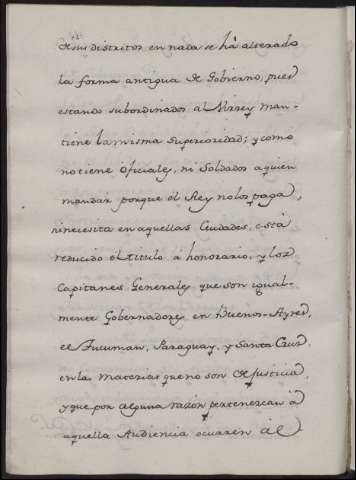 de sus distritos en nada se há alterado
la forma antigua de Govierno, pues
estando subordinados al Virrey man-
tiene la misma Superioridad; y como
no tiene oficiales, ni Soldados a quien
mandar porque el Rey no los paga,
ni necesita en aquellas Ciudades, está
reducido el titulo a honorario, y los
Capitanes Generales que son igual-
mente Gobernadores en Buenos-Ayres,
el Tucuman, Paraguay, y Santa Cruz
en las materias que no son de Justicia,
y que por alguna razón pertenezcan à
aquella Audiencia ocurren àl